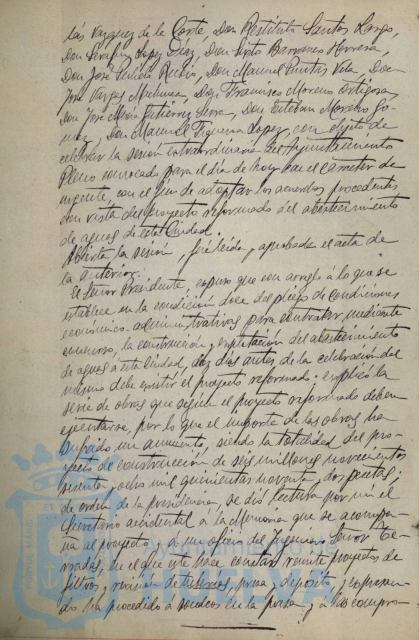 lás Vázquez de la Corte, Don Restituto Santos Largo,
Don Serafín López Díaz, Don Sixto Barranco Herrera,
Don José Rubio, Don Manuel Puntas Vela, Don
José Vargas Machuca, Don Francisco Moreno Ortigosa,
Don José María Gutiérrez Serra, Don Esteban Moreno Gó-
mez, Don Manuel Figueroa López, con objeto de
celebrar la sesión extraordinaria del Ayuntamiento
Pleno convocada para el día de hoy con el carácter de
urgente, con el fin de adoptar los acuerdos procedentes
con vista del proyecto reformado del abastecimiento
de aguas de esta Ciudad.
Abierta la sesión, fué leida y aprobada el acta de
la anterior.
El Señor Presidente, expuso que con arreglo á lo que se
establece en la condición doce del pliego de condiciones
económico-administrativas para contratar, mediante
concurso, la construcción y explotación del abastecimiento
de aguas á esta Ciudad, diez días antes de la celebración del
mismo debe existir el proyecto reformado; explicó la
serie de obras que según el proyecto reformado deben
ejecutarse, por lo que el importe de las obras ha
sufrido un aumento, siendo la totalidad del pro-
yecto de construcción de seis millones novecientos
ocho mil quinientas noventa y dos pesetas;
de orden de la presidencia, se dió lectura por mí el
Secretario accidental á la Memoria que se acompa-
ña al proyecto y á un oficio del Ingeniero Señor
en el que este hace constar remite proyectos de
filtros, revisión de tuberías, presa y depósito, y
do ha procedido á sondeos en la presa, y á las compro-
Ayuntamiento de
HUELVA